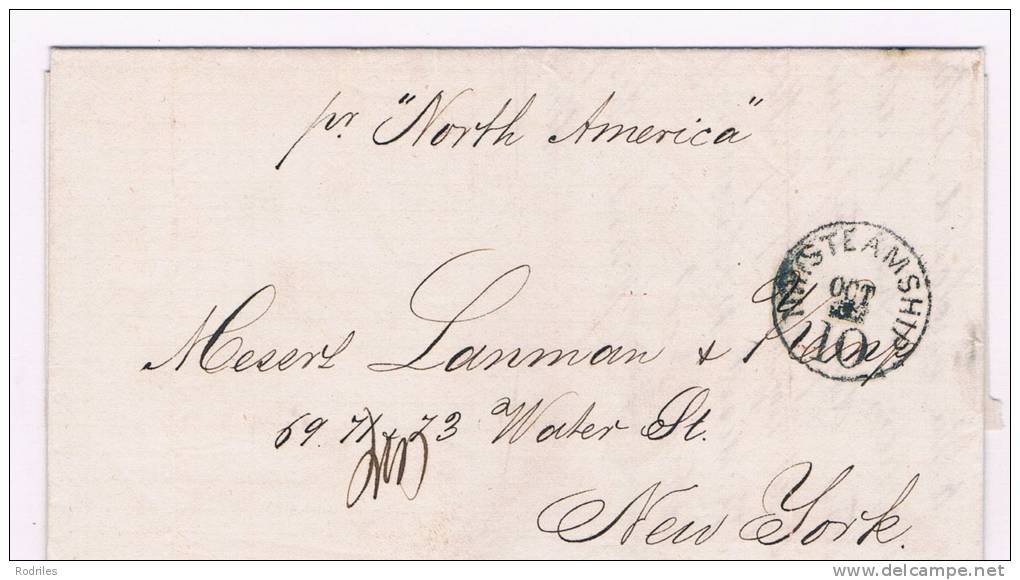 pr "North America"
N.Y. STEAMSHIP
OCT
10
Messrs Lanman & Kemp
69. 71 & 73 Water St.
New York.
Rodriles
delcampe.net